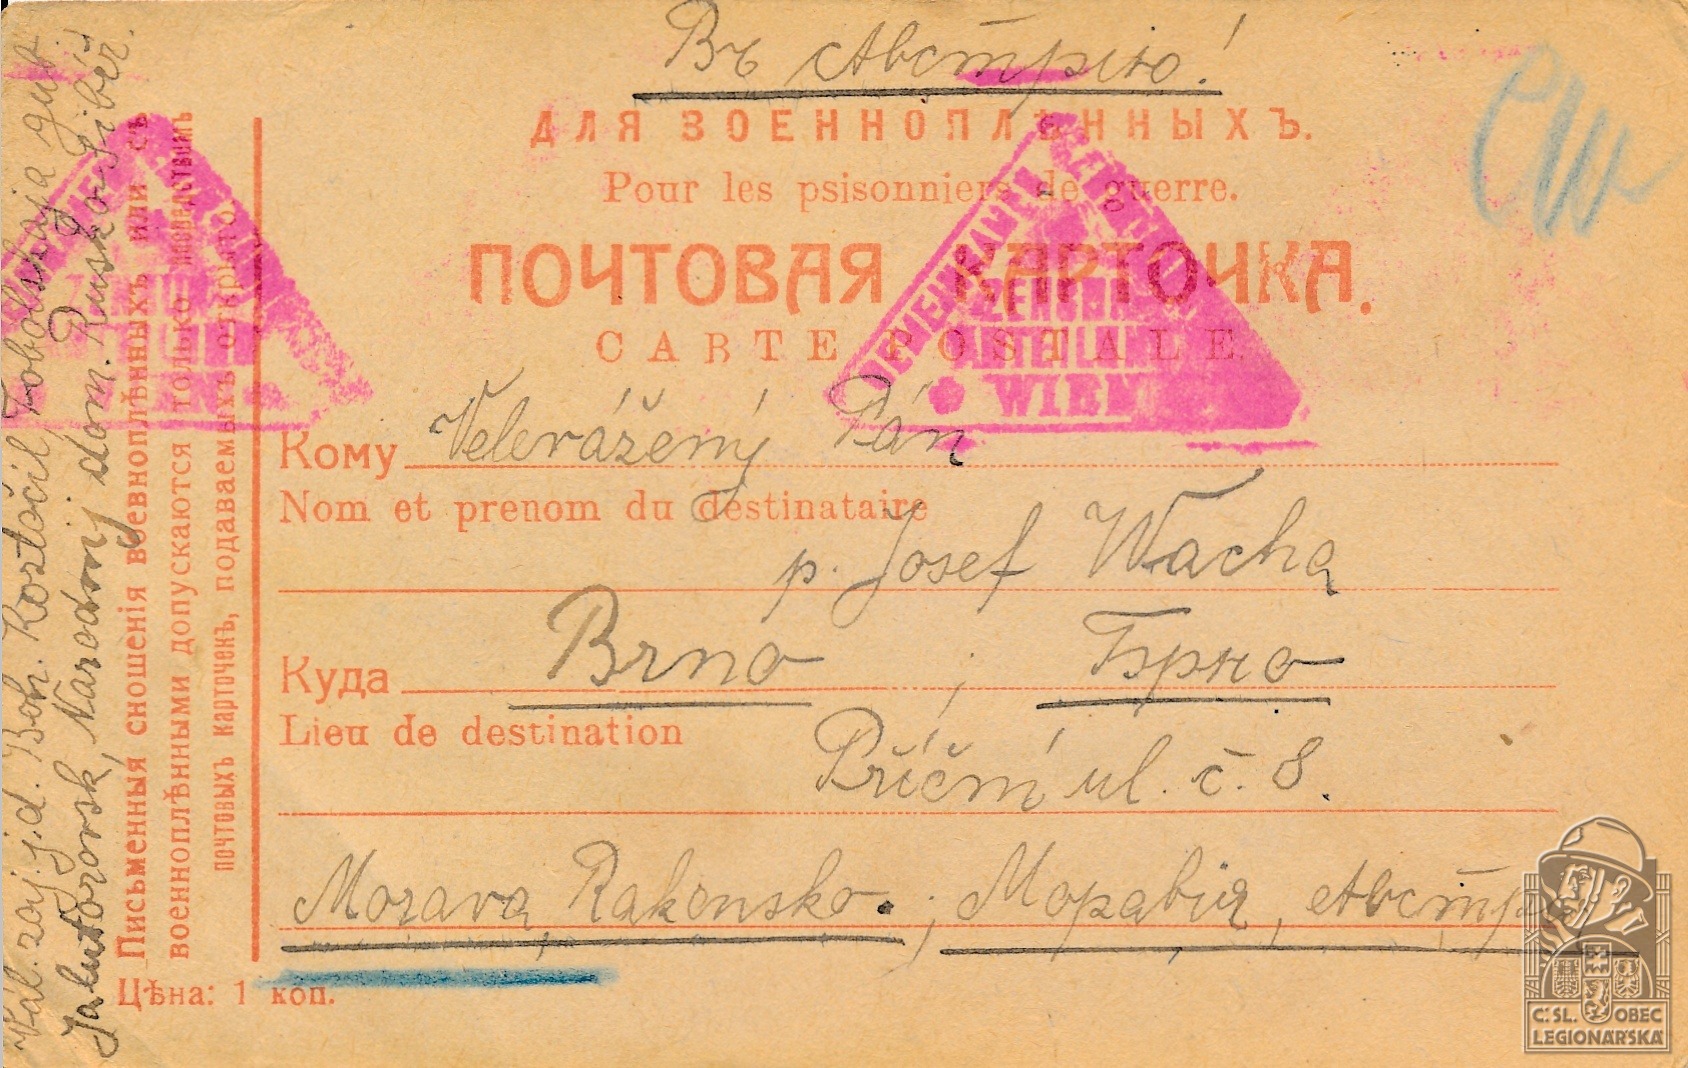 Въ Австрію!
ДЛЯ ВОЕННОПЛѢННЫХЪ.
Pour les psisonniers de guerre.
ПОЧТОВАЯ КАРТОЧКА.
CARTE POSTALE
WIEN
WIEN
Кому Velevážený Pán
Nom et prenom du destinataire
p. Josef Wacha
Куда Brno ; Брно
Lieu de destination
Příční ul. č. 8.
Morava, Rakousko. ; Моравія, Австрія
Цѣна: 1 коп.
Письменныя сношенія военноплѣнныхъ или съ
военноплѣнными допускаются только посредствомъ
почтовыхъ карточекъ, подаваемыхъ открыто.
Vál. zaj. j. d. Boh. Roztočil, Tobolskaja gub.
Jalutorovsk, Narodnij dom. Rusko Siběř.
Č: SL. OBEC
LEGIONÁŘSKÁ